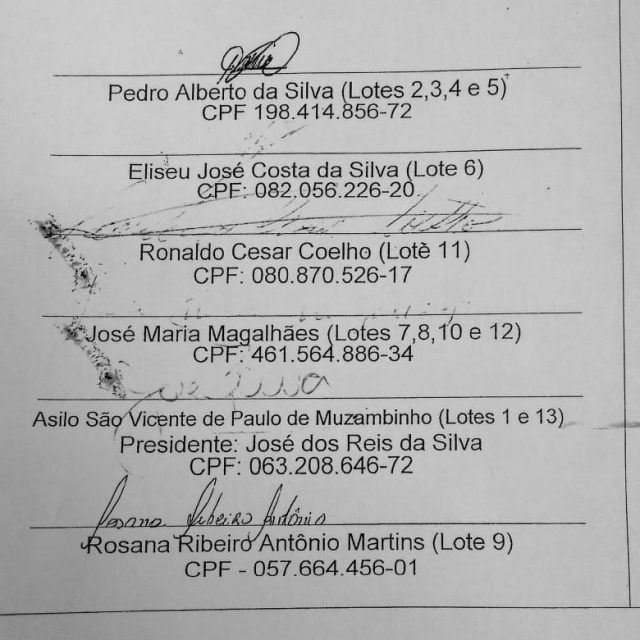 Pedro Alberto da Silva (Lotes 2,3,4 e 5)
CPF 198.414.856-72
Eliseu José Costa da Silva (Lote 6)
CPF: 082.056.226-20
Ronaldo Cesar Coelho (Lote 11)
CPF: 080.870.526-17
José Maria Magalhães (Lotes 7,8,10 e 12)
CPF: 461.564.886-34
Asilo São Vicente de Paulo de Muzambinho (Lotes 1 e 13)
Presidente: José dos Reis da Silva
CPF: 063.208.646-72
Rosana Ribeiro Antônio
Rosana Ribeiro Antônio Martins (Lote 9)
CPF - 057.664.456-01